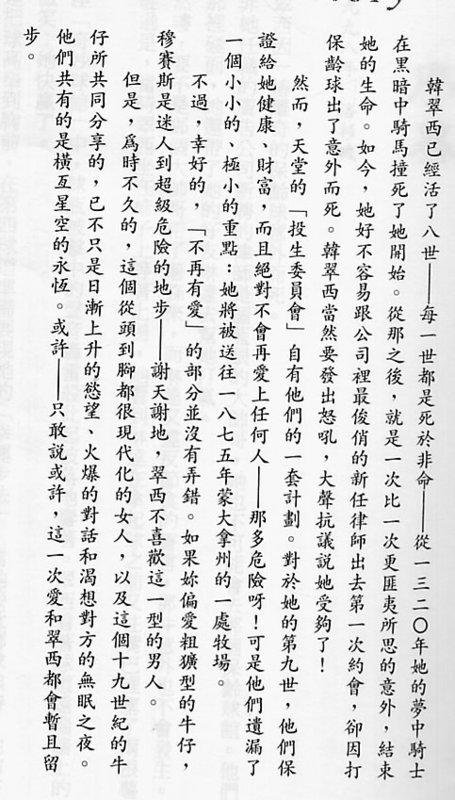 韓翠西已經活了八世——每一世都是死於非命——從一三二○年她的夢中騎士
在黑暗中騎馬撞死了她開始。從那之後，就是一次比一次更匪夷所思的意外，結束
她的生命。如今，她好不容易跟公司裡最俊俏的新任律師出去第一次約會，卻因打
保齡球出了意外而死。韓翠西當然要發出怒吼，大聲抗議說她受夠了！
然而，天堂的「投生委員會」自有他們的一套計劃。對於她的第九世，他們保
證給她健康、財富，而且絕對不會再愛上任何人——那多危險呀！可是他們遺漏了
一個小小的、極小的重點：她將被送往一八七五年蒙大拿州的一處牧場。
不過，幸好的，「不再有愛」的部分並沒有弄錯。如果妳偏愛粗獷型的牛仔，
穆賽斯是迷人到超級危險的地步——謝天謝地，翠西不喜歡這一型的男人。
但是，為時不久的，這個從頭到腳都很現代化的女人，以及這個十九世紀的牛
仔所共同分享的，已不只是日漸上升的慾望、火爆的對話和渴想對方的無眠之夜。
他們共有的是橫亙星空的永恆。或許——只敢說或許，這一次愛和翠西都會暫且留
步。